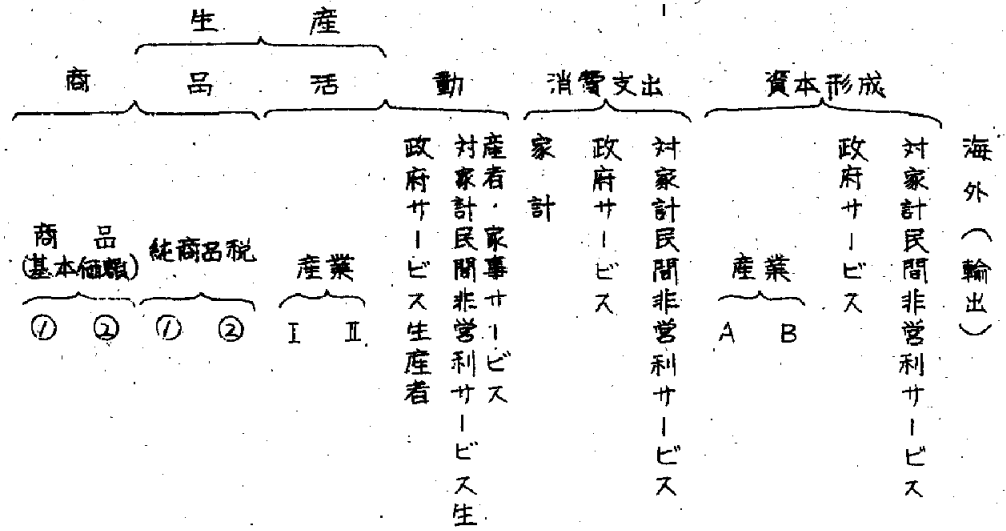 生産
商品活動 消費支出 資本形成
商品
(基本価額)
純商品税
産業
政府サービス生産者
対家計民間非営利サービス生
産者・家事サービス
家計
政府サービス
対家計民間非営利サービス
産業
政府サービス
対家計民間非営利サービス
海外(輸出)
① ② ① ② I II A B